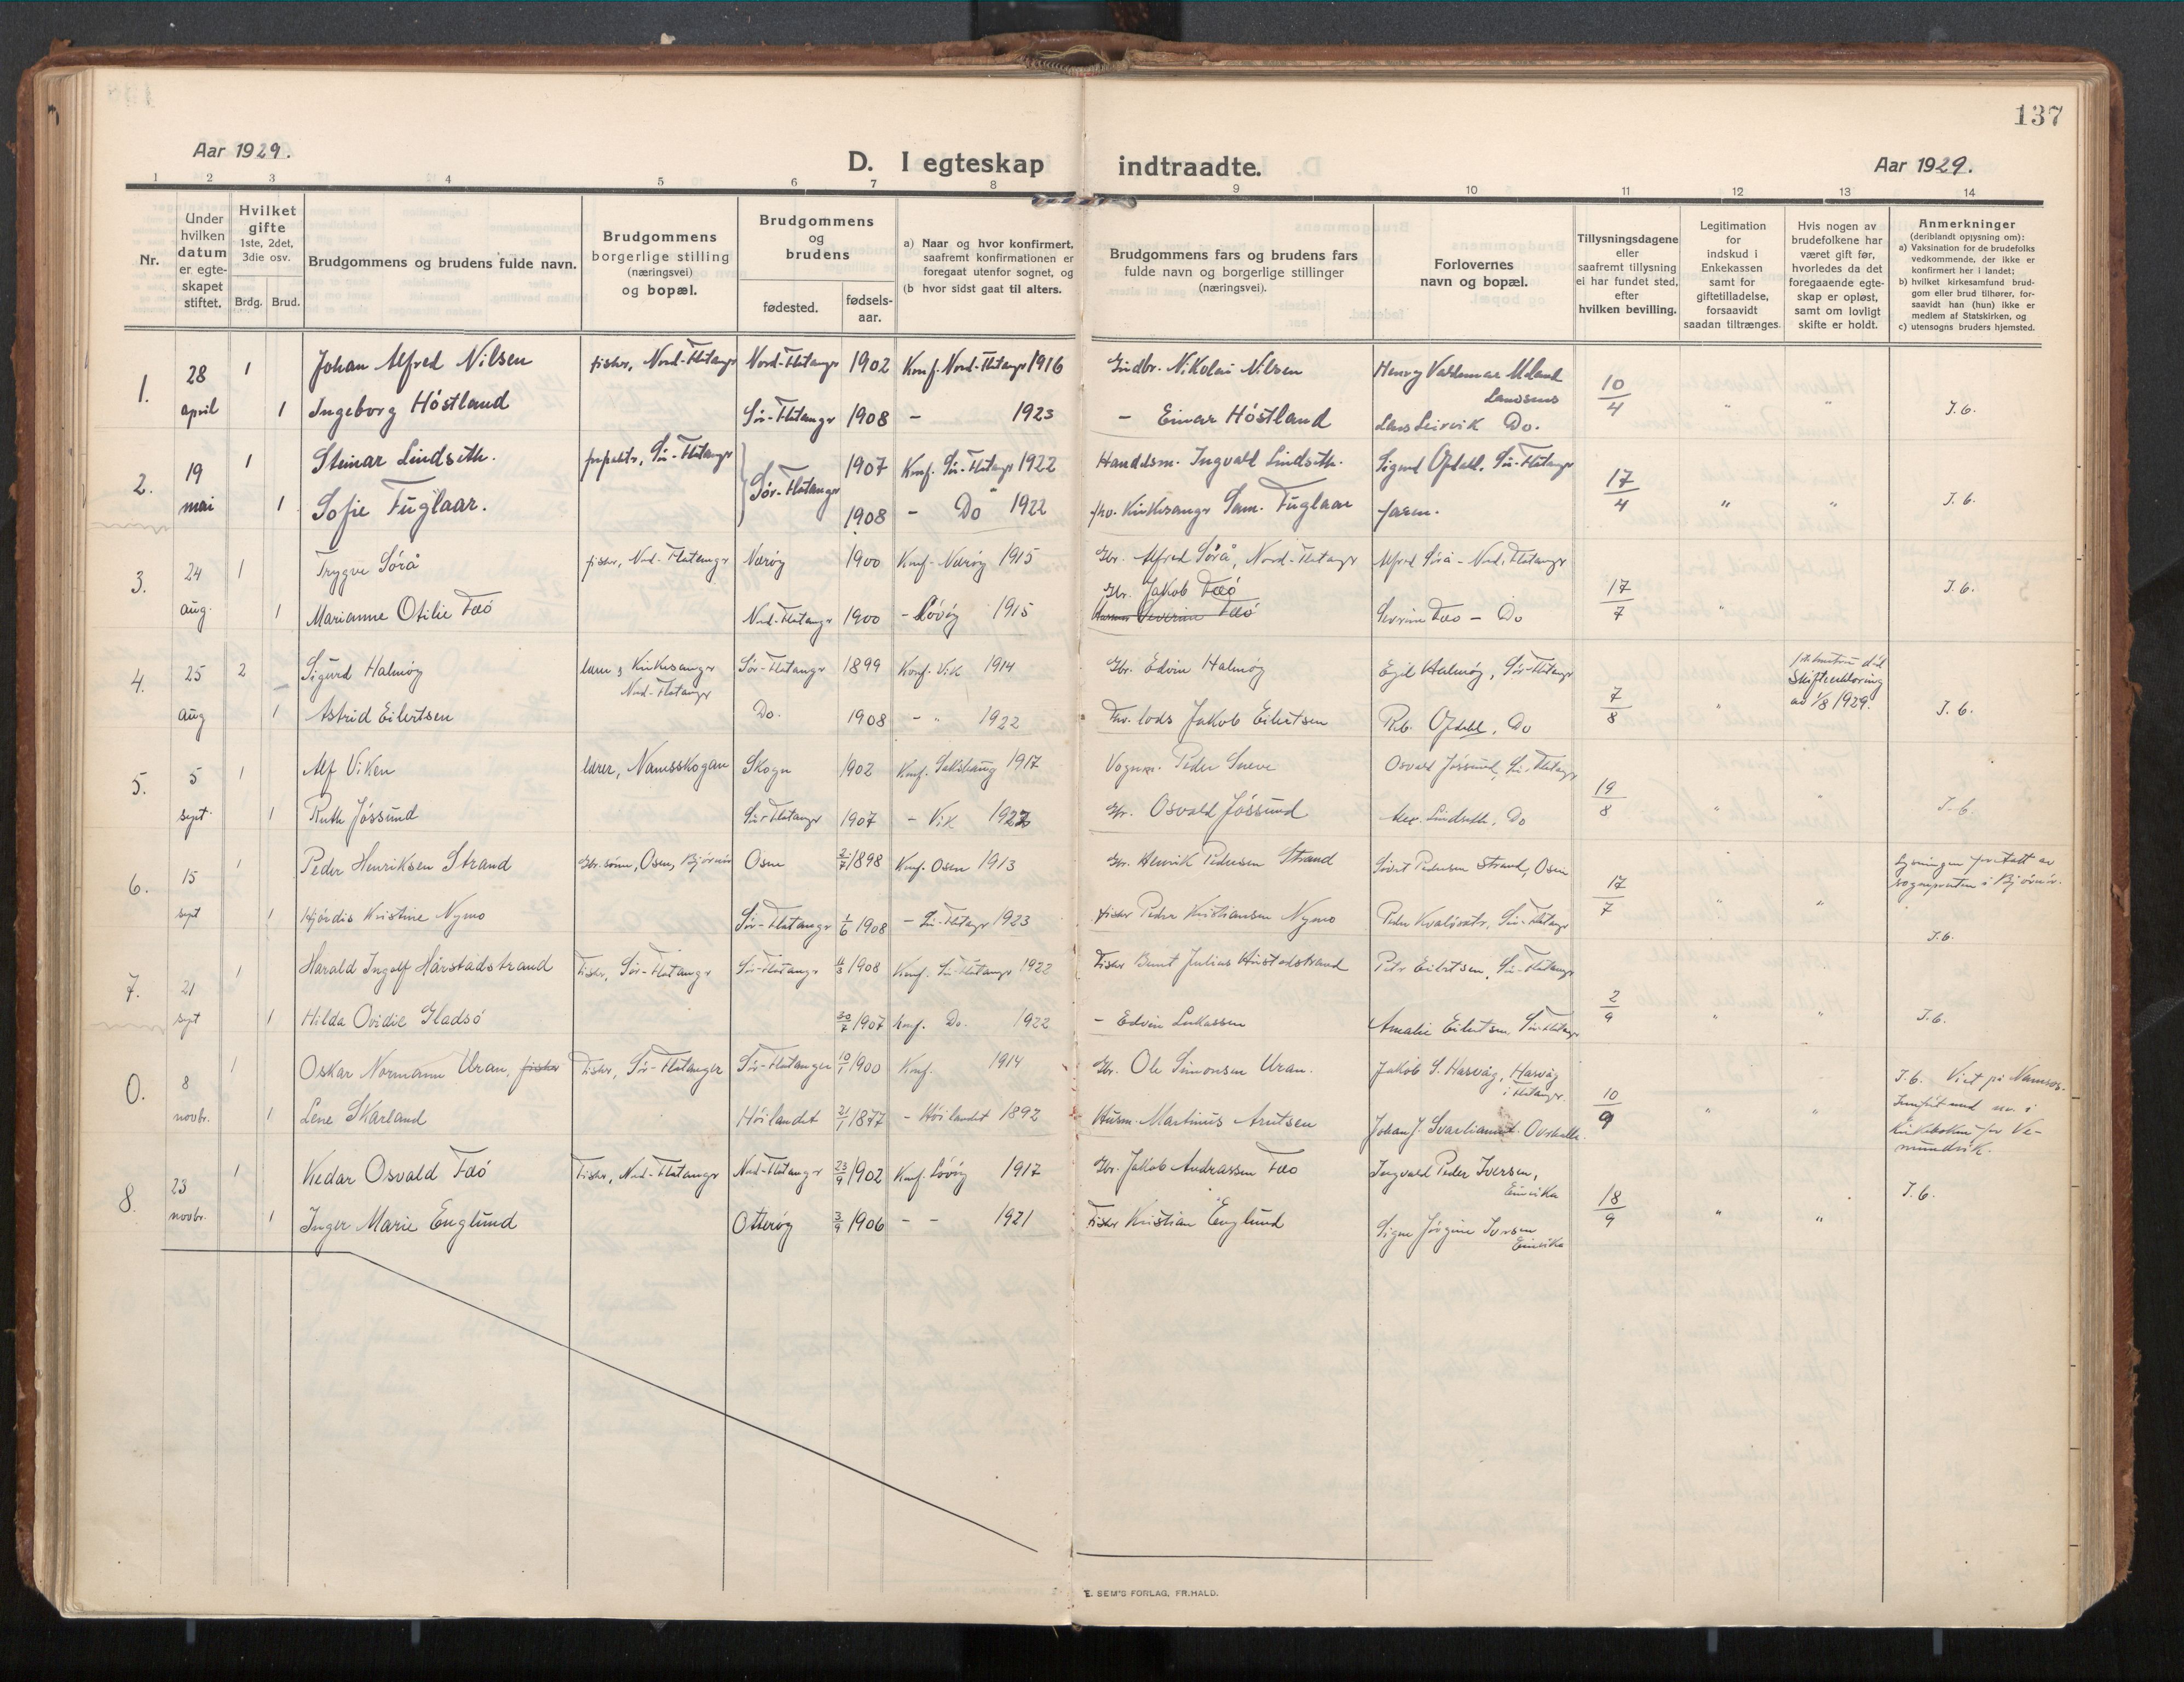 137
Aar 1929.
D. I egteskap indtraadte.
Aar 1929.
1 2 3 4 5 6 7 8 9 10 11 12 13 14
Nr.
Under hvilken datum er egte-skapet stiftet.
Hvilket gifte 1ste, 2det, 3die osv.
Brdg. Brud.
Brudgommens og brudens fulde navn.
Brudgommens borgerlige stilling (næringsvei) og bopæl.
Brudgommens og brudens
fødested.
fødsels-aar.
a) Naar og hvor konfirmert, saafremt konfirmationen er foregaat utenfor sognet, og
(b hvor sidst gaat til alters.
Brudgommens fars og brudens fars fulde navn og borgerlige stillinger (næringsvei).
Forlovernes navn og bopæl.
Tillysningsdagene eller saafremt tillysning ei har fundet sted, efter hvilken bevilling.
Legitimation for indskud i Enkekassen samt for giftetilladelse, forsaavidt saadan tiltrænges.
Hvis nogen av brudefolkene har været gift før, hvorledes da det foregaaende egte-skap er opløst, samt om lovligt skifte er holdt.
Anmerkninger (deriblandt opjysning om):
a) Vaksination for de brudefolks vedkommende, der ikke er konfirmert her i landet;
b) hvilket kirkesamfund brud-gom eller brud tilhører, for-saavidt han (hun) ikke er medlem af Statskirken, og
c) utensogns bruders hjemsted.
1. 28 1 Johan Alfred Nilsen fisker, Nord-Flatanger Nord-Flatanger 1902 Konf. Nord-Flatanger 1916 Gårdbr. Nikolai Nilsen Henry Valdemar 10/4
april 1 Ingeborg Höstland Sör-Flatanger 1908 - 1923 - Einar Höstland Lars Leirvik Do. " " I. b.
2. 19 1 Steinar Lindseth. Sör-Flatanger 1907 Konf. Sör-Flatanger 1922 Handelsm. Ingvald Lindseth. Sigurd Opdahl, Sör-Flatanger 17/4
mai 1 Sofie Fuglaar. Sör-Flatanger 1908 - Do 1922 fhv. Kirkesanger Sam. Fuglaar faren. " " I. b.
3. 24 1 Trygve Sörå fisker, Nord-Flatanger Nærøy 1900 Konf. Nærøy 1915 Gbr. Alfred Sörå, Nord-Flatanger Alfred Sörå - Nord-Flatanger 17/7
aug. 1 Marianne Otilie Faö Nord-Flatanger 1900 - Lövöy 1915 Gbr. Jakob Faö Severin Faö Severin Faö - Do " I. b.
4. 25 2 Sigurd Halmøy lærer & Kirkesanger Nord-Flatanger Sör-Flatanger 1899 Konf. Vik 1914 Gbr. Edvin Halmøy Egil Halmøy, Sör-Flatanger 7/8 1ste hustru död Skifteerklæring av 1/8 1929.
aug 1 Astrid Eilertsen Do. 1908 - " 1922 Fhv. lods Jakob Eilertsen Opdahl, Do " I. b.
5. 5 1 Alf Viken lærer, Namsskogan Skogn 1902 Konf. Sakshaug 1917 Vognm. Peder Sneve Osvald Jössund, Sör-Flatanger 19/8
sept. 1 Ruth Jössund Sör-Flatanger 1907 - Vik 1922 Gbr. Osvald Jössund Alex. Lindseth, Do " " I. b.
6. 15 1 Peder Henriksen Strand Gbr. sönn, Osen, Björnör Osen 2/7 1898 Konf. Osen 1913 Gbr. Henrik Pedersen Strand Sivert Pedersen Strand, Osen 17/7 Lysningen foretatt av sognepresten i Björnör.
sept 1 Hjördis Kristine Nymo Sör-Flatanger 1/6 1908 - Sör-Flatanger 1923 fisker Peder Kristiansen Nymo Peder Kvalösæter, Sör-Flatanger " " I. b.
7. 21 1 Harald Ingolf Hårstadstrand Fisker, Sör-Flatanger Sör-Flatanger 1908 Konf. Sör-Flatanger 1922 Fisker Bernt Julius Hårstadstrand Peter Eilertsen, Sör-Flatanger 2/9
sept 1 Hilda Ovidie Gladsö 30/7 1907 Konf. Do. 1922 - Edvin Lukassen Amalie Eilertsen Sör-Flatanger " " I. b.
0. 8 1 Oskar Normann Uran, fisker Fisker, Sör-Flatanger Sör-Flatanger 10/1 1900 Konf. 1914 Gbr. Ole Simonsen Uran. Jakob S. Hasvåg, Hasvåg i Flatanger. 10/9 I. b. Viet på Namsos. Innført med nr. i Kirkeboken for Ve-mundvik.
novbr. 1 Lene Skarland Höilandet 21/1 1877 - Höilandet 1892 Husm. Martinus Arntsen Johan J. Svarliamoet. Overhalla. " "
8. 23 1 Kedar Osvald Faö Fisker, Nord-Flatanger Nord-Flatanger 23/9 1902 Konf. Lövöy 1917 Gbr. Jakob Andreassen Faö Ingvald Peder Iversen, Einvika 18/9 I. b.
novbr. 1 Inger Marie Englund Otterøy 3/9 1906 - - 1921 Fisker Kristian Englund Signe Jörgine Iversen Einvika " "
E. SEM'S FORLAG, FR.HALD.